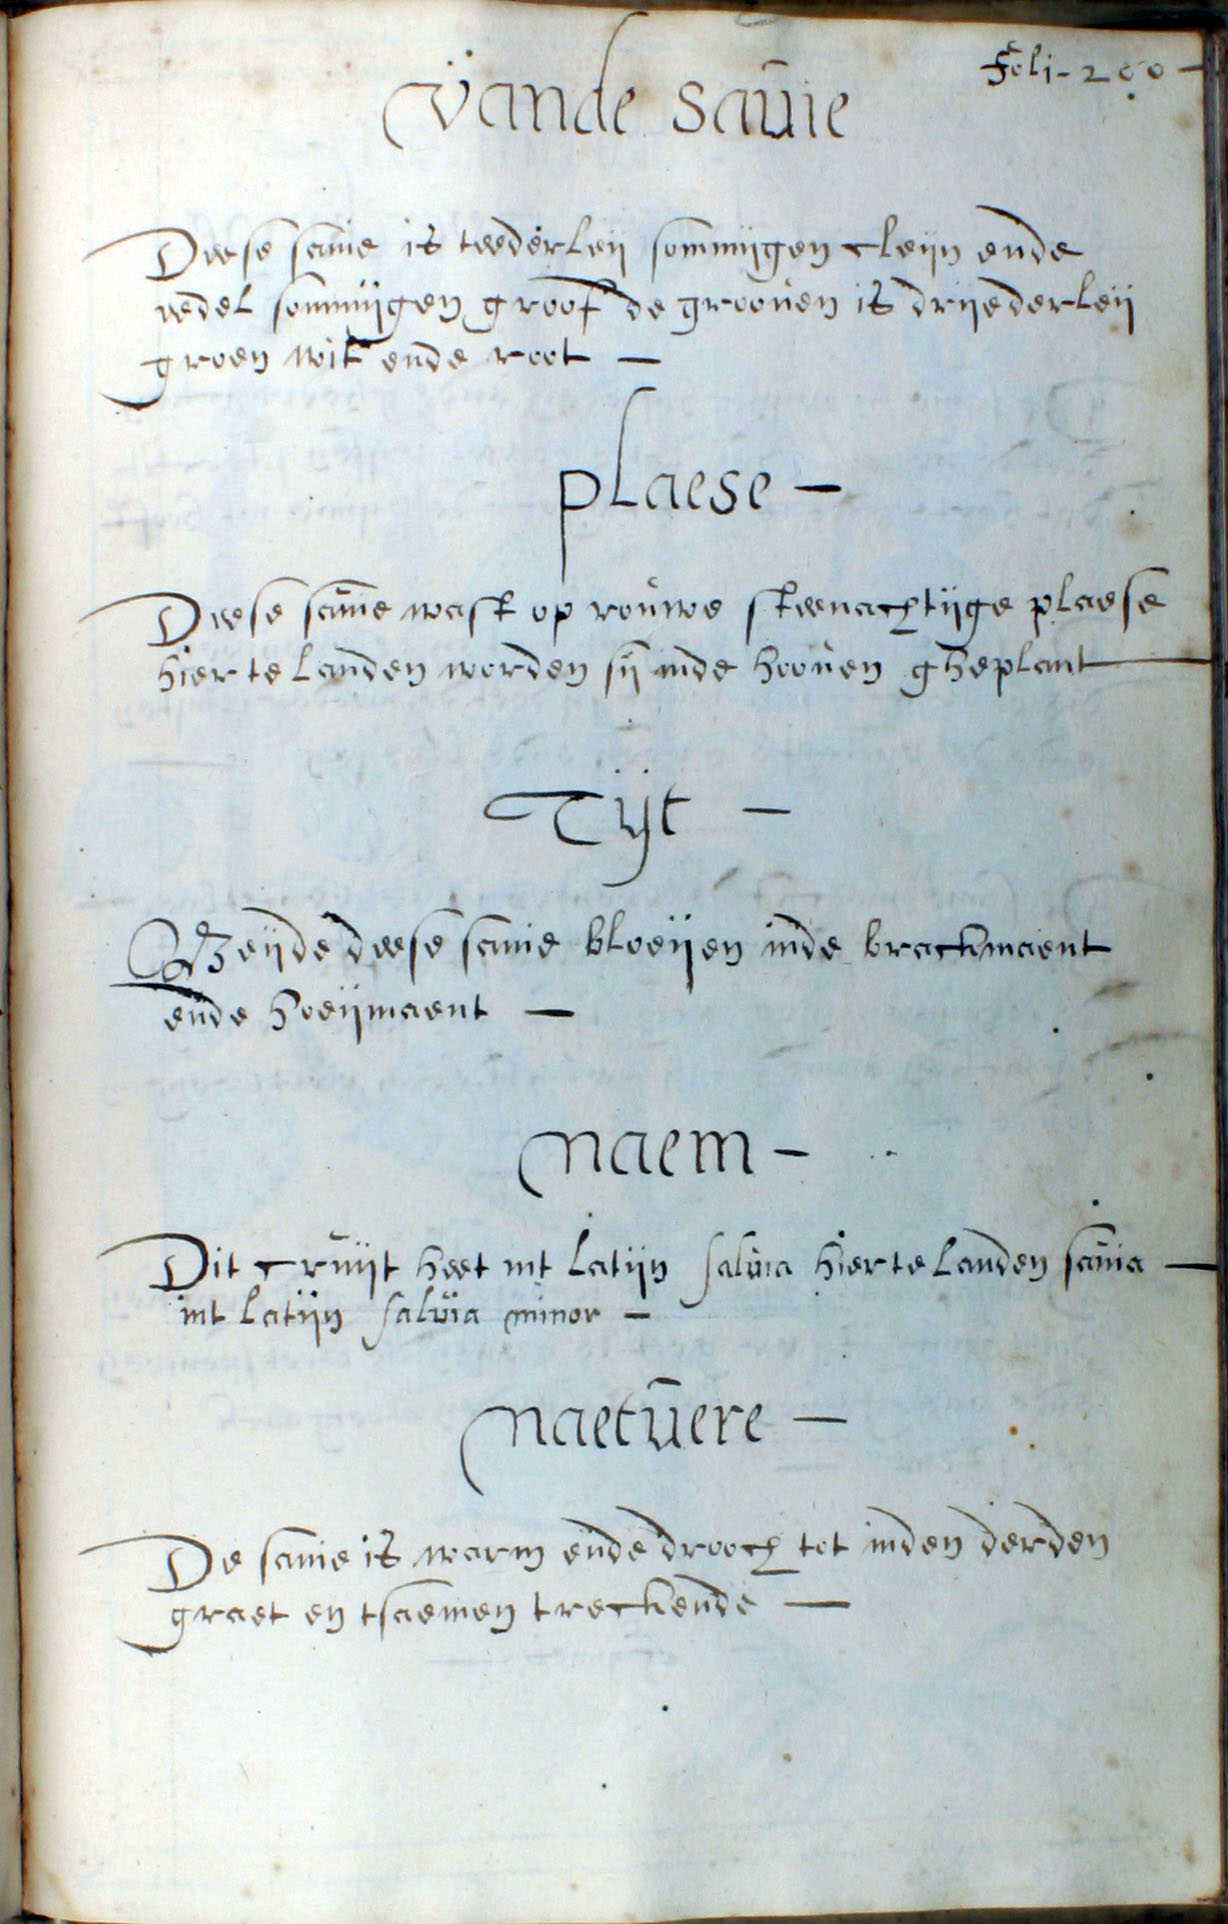 foli - 200 -
vande sauie
Deese sauie is tweederleij sommijgen cleijn ende
eedel sommijgen groof de groouen is drijederleij
groen wit ende root -
plaese -
Deese sauie wast op rouwe steenachtijge plaese
hier te landen worden sij inde hoouen gheplant
Tijt -
Beijde deese sauie bloeijen inde brackmaent
ende hoeijmaent -
naem -
Dit cruijt heet int latijn salvia hier te landen sauia -
int latijn salvia minor -
naetuere -
De sauie is warm ende drooch tot inden derden
graet en tsaemen treckende -